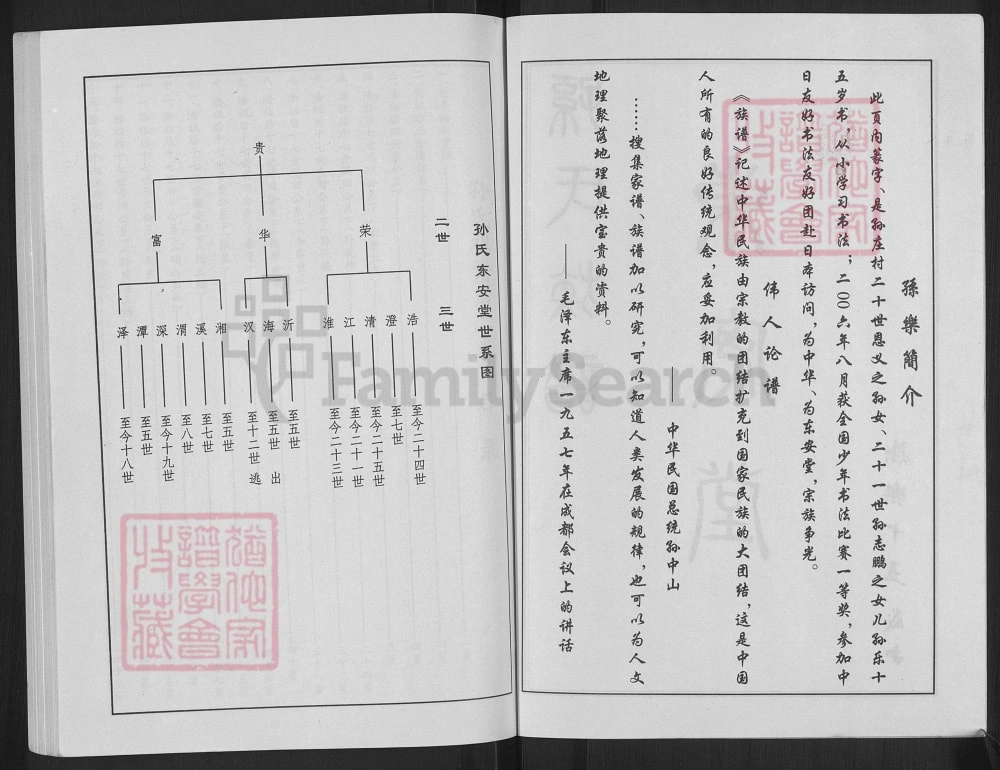 孫樂簡介
此页内篆字、是孙庄村二十世恩义之孙女、二十一世孙志鹏之女儿孙乐十
五岁书，从小学习书法；二00六年八月获全国少年书法比赛一等奖，参加中
日友好书法友好团赴日本访问，为中华、为东安堂，宗族争光。
伟人论谱
《族谱》记述中华民族由宗教的团结扩充到国家民族的大团结，这是中国
人所有的良好传统观念，应妥加利用。
——中华民国总统孙中山
……搜集家谱、族谱加以研究，可以知道人类发展的规律，也可以为人文
地理聚落地理提供宝贵的资料。
——毛泽东主席一九五七年在成都会议上的讲话
孙氏东安堂世系图
二世 三世
贵
荣
华
富
浩 至今二十四世
澄 至七世
清 至今二十五世
江 至今二十一世
淮 至今二十三世
沂 至五世
海 至五世 出
汉 至十二世 逃
湘 至五世
溪 至七世
渭 至八世
深 至今十九世
潭 至五世
泽 至今十八世
FamilySearch
猶他家
譜學會
收藏
猶他家
譜學會
收藏